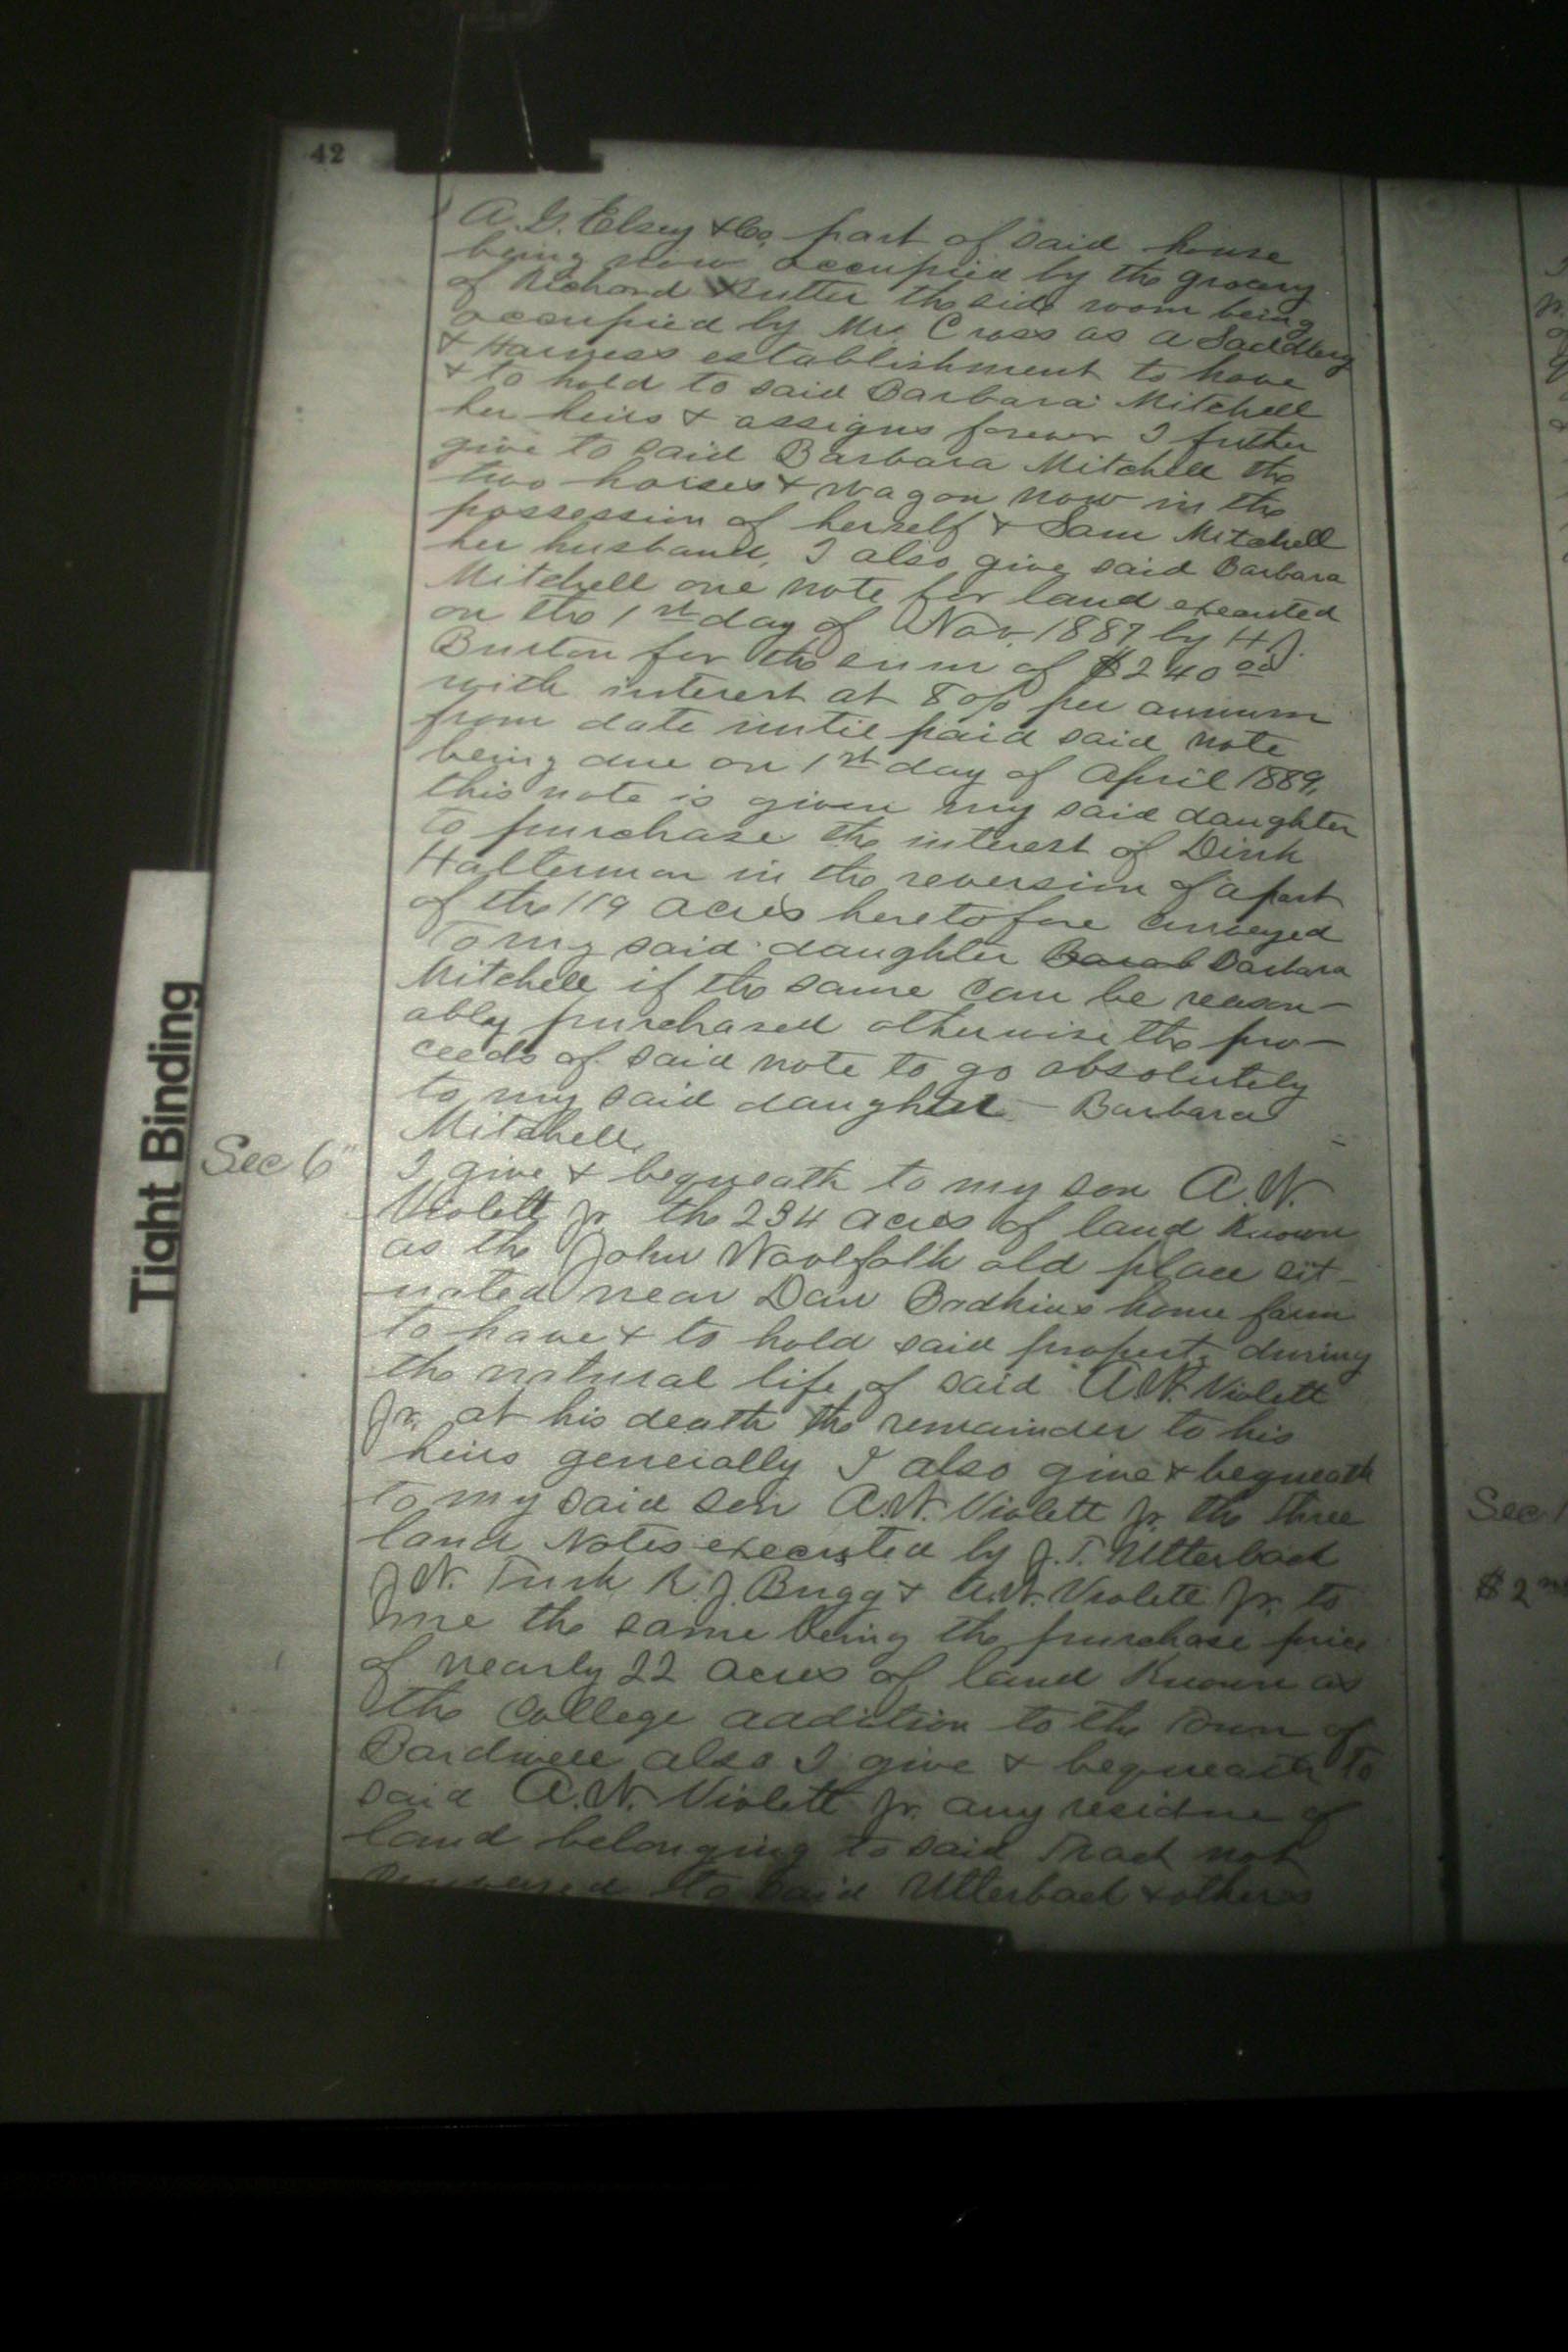 42
A. G. Elsey & Co, part of said house
being now occupied by the grocery
of Richard Rutter the side room being
occupied by Mr. Cross as a Saddlery
& Harness establishment to have
& to hold to said Barbara Mitchell
her heirs & assigns forever I futher
give to said Barbara Mitchell the
two horses & wagon now in the
possession of herself & Sam Mitchell
her husband, I also give said Barbara
Mitchell one note for land executed
on the 1st day of Nov. 1887 by H. J.
Burton for the sum of $240 00
with interest at 8 o/o per annum
from date until paid said note
being due on 1st day of April 1889,
this note is given my said daughter
to purchase the interest of Dink
Halterman in the reversion of a part
of the 119 acres heretofore conveyed
to my said daughter Barab Barbara
Mitchell if the same can be reason-
ably purchased otherwise the pro-
ceeds of said note to go absolutely
to my said daughter - Barbara
Mitchell.
Tight Binding
Sec 6"
I give & bequeath to my son A. W.
Violett Jr. the 234 acres of land known
as the John Woolfolk old place sit-
uated near Dan Bodkins home farm
to have & to hold said propert during
the natural life of said A. W. Violett
Jr. at his death the remainder to his
heirs generially I also give & bequeath
to my said son A. W. Violett Jr. the three
land Notes executed by J. T. Utterback
J. W. Turk R. J. Bugg & A. W. Violett Jr. to
me the same being the purchase price
of nearly 22 acres of land known as
the College addition to the Town of
Bardwell also I give & bequeath to
said A. W. Violett Jr. any residue of
land belonging to said Tract not
conveyed to said Utterback & others
Sec
$2